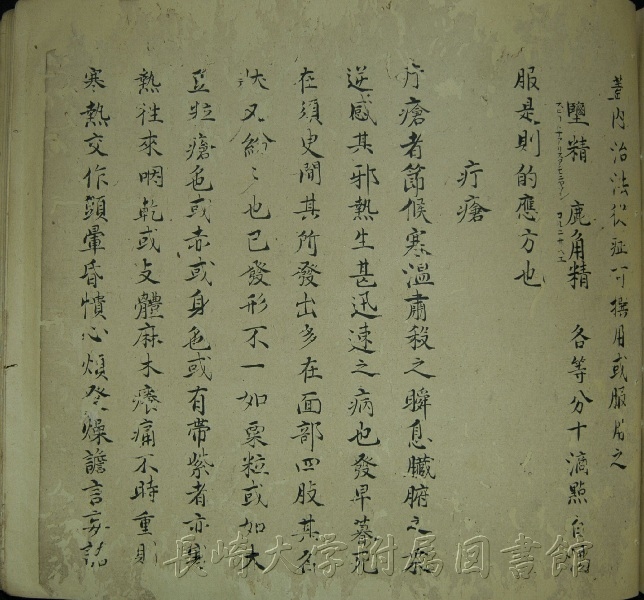 蓋内治法従症可撰用或服眉之
墮精 鹿角精 各等分十滴點白酒
服是則的應方也
疔瘡
疔瘡者節候寒温肅殺之瞬息臟腑之
逆感其邪熱生甚迅速之病也發早暮死
在須臾間其所發出多在面部四肢其名
状又紛〻也已發形不一如粟粒或如大
豆粒瘡色或赤或身色或有帶紫者亦
熱往來咽乾或支體麻木痛不時重則
寒熱交作頭暈昏憒心煩發燥譫言妄語
長崎大学附属図書館